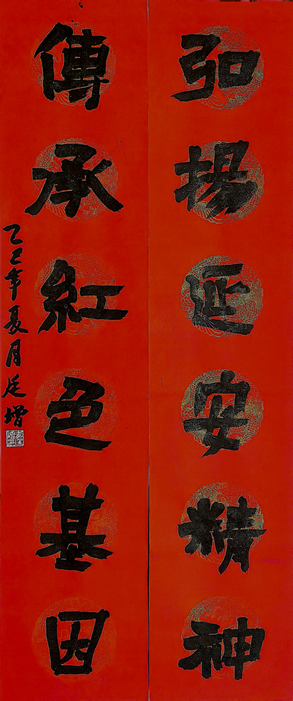 弘揚延安精神
傳承紅色基因
乙巳年夏月廷增